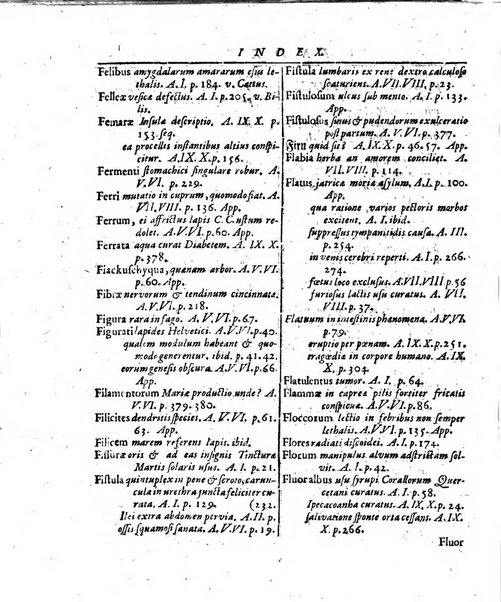 INDEX
Felibus amygdalarum amararum esus le-
thalis. A. I. p. 184. v. Cattus.
Fellex vesicæ defectus. A. I. p. 205. v. Bi-
lis.
Femaræ Insulæ descriptio. A. IX. X. p.
153. seq.
ea procellis instantibus altius conspi-
citur. A. IX. X. p. 156.
Fermenti stomachici singulare robur. A.
V. VI. p. 229.
Ferri mutatio in cuprum, quomodo fiat. A.
VII. VIII. p. 136. App.
Ferrum, ei affrictus lapis C. C. ustum re-
dolet. A. V. VI. p. 60. App.
Ferrata aqua curat Diabetem. A. IX. X.
p. 378.
Fiackuschyqua, quænam arbor. A. V. VI.
p. 60. App.
Fibræ nervorum & tendinum cincinnatæ.
A. V. VI. p. 208.
Figura rara in fago. A. V. VI. p. 67.
Figurati lapides Helvetici. A. V. VI. p. 40.
qualem modulum habeant & quo-
modo generentur. ibid. p. 41. 42.
eorum genesis obscura. A. V. VI. p. 66.
App.
Filamentorum Mariæ productio unde? A.
V. VI. p. 379. 380.
Filicites dendritis species. A. V. VI. p. 61.
63. App.
Filicem marem referens lapis. ibid.
Fissuræ oris & ad eas insignis Tinctura
Martis solaris usus. A. I. p. 21.
Fistula quintuplex in pene & scroto, carun-
cula in urethra juncta feliciter cu-
rata. A. I. p. 129. (232.
Ilei extra abdomen pervia. A. II. p.
ossis squamosi sanata. A. V. VI. p. 19.
Fistula lumbaris ex rene dextro calculoso
scaturiens. A. VII. VIII. p. 23.
Fistulosum ulcus sub mento. A. I. p. 133.
App.
Fistulosus sinus & pudendorum exulceratio
post partum. A. V. VI. p. 377.
quid sit? A. IX. X. p. 46. 57. App.
Flabia herba an amorem conciliet. A.
VII. VIII. p. 114.
Flatus, jatrica moria asylum, A. I. p. 100.
App.
qua ratione varios pectoris morbos
excitent. A. I. ibid.
suppressus tympanitidis causa. A. I.
p. 254.
in venis cerebri reperti. A. I. p. 266.
274.
fœtus loco exclusus. A. VII. VIII. p. 56
furiosus lactis usu curatus. A. VII.
VIII. p. 37.
Flatuum in intestinis phænomena. A. V. VI.
p. 79.
eruptio per pœnam. A. IX. X. p. 251.
tragœdia in corpore humano. A. IX.
X. p. 304
Flatulentus tumor. A. I. p. 64.
Flammæ in caprea pilis fortiter fricatis
conspicuæ. A. V. VI. p. 86.
Floccorum lectio in febribus non semper
lethalis. A. V. VI. p. 135. App.
Flores radiati discoidei. A. I. p. 174.
Florum manipulus alvum adstrictam sol-
vit. A. I. p. 42.
Fluor albus usu syrupi Corallorum Quer-
cetani curatus. A. I. p. 58.
Ipecacoanha curatus. A. IX. X. p. 24.
salivatione sponte orta cessans. A. IX.
X. p. 266.
Fluor